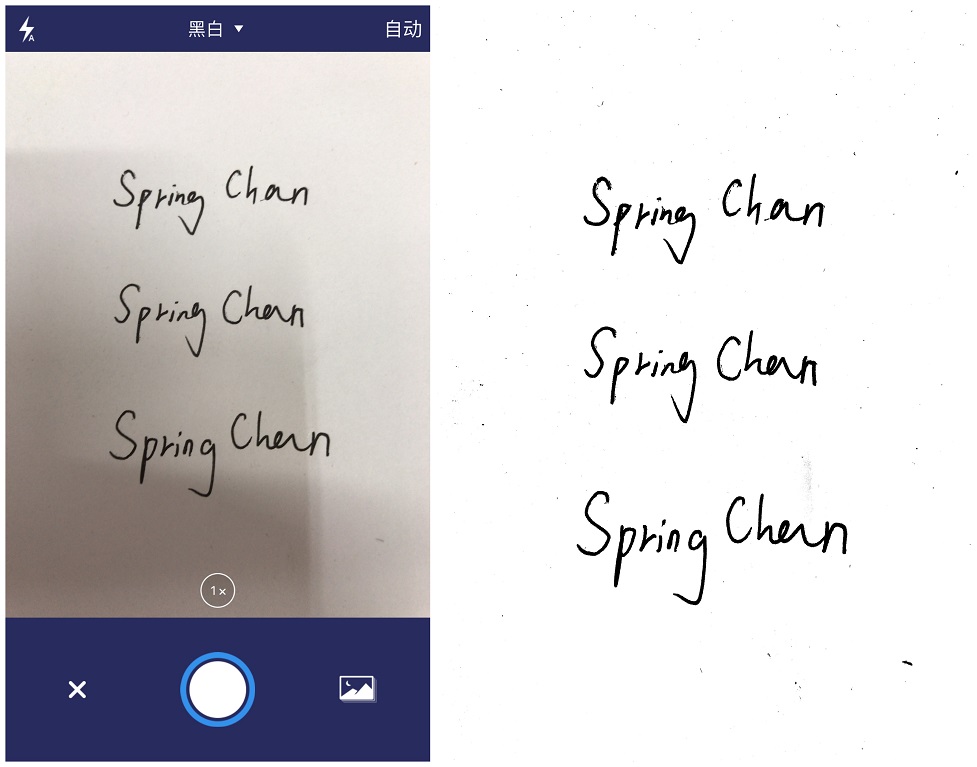 黑白 自动
Spring Chan
Spring Chan
Spring Chan
1×
Spring Chan
Spring Chan
Spring Chan